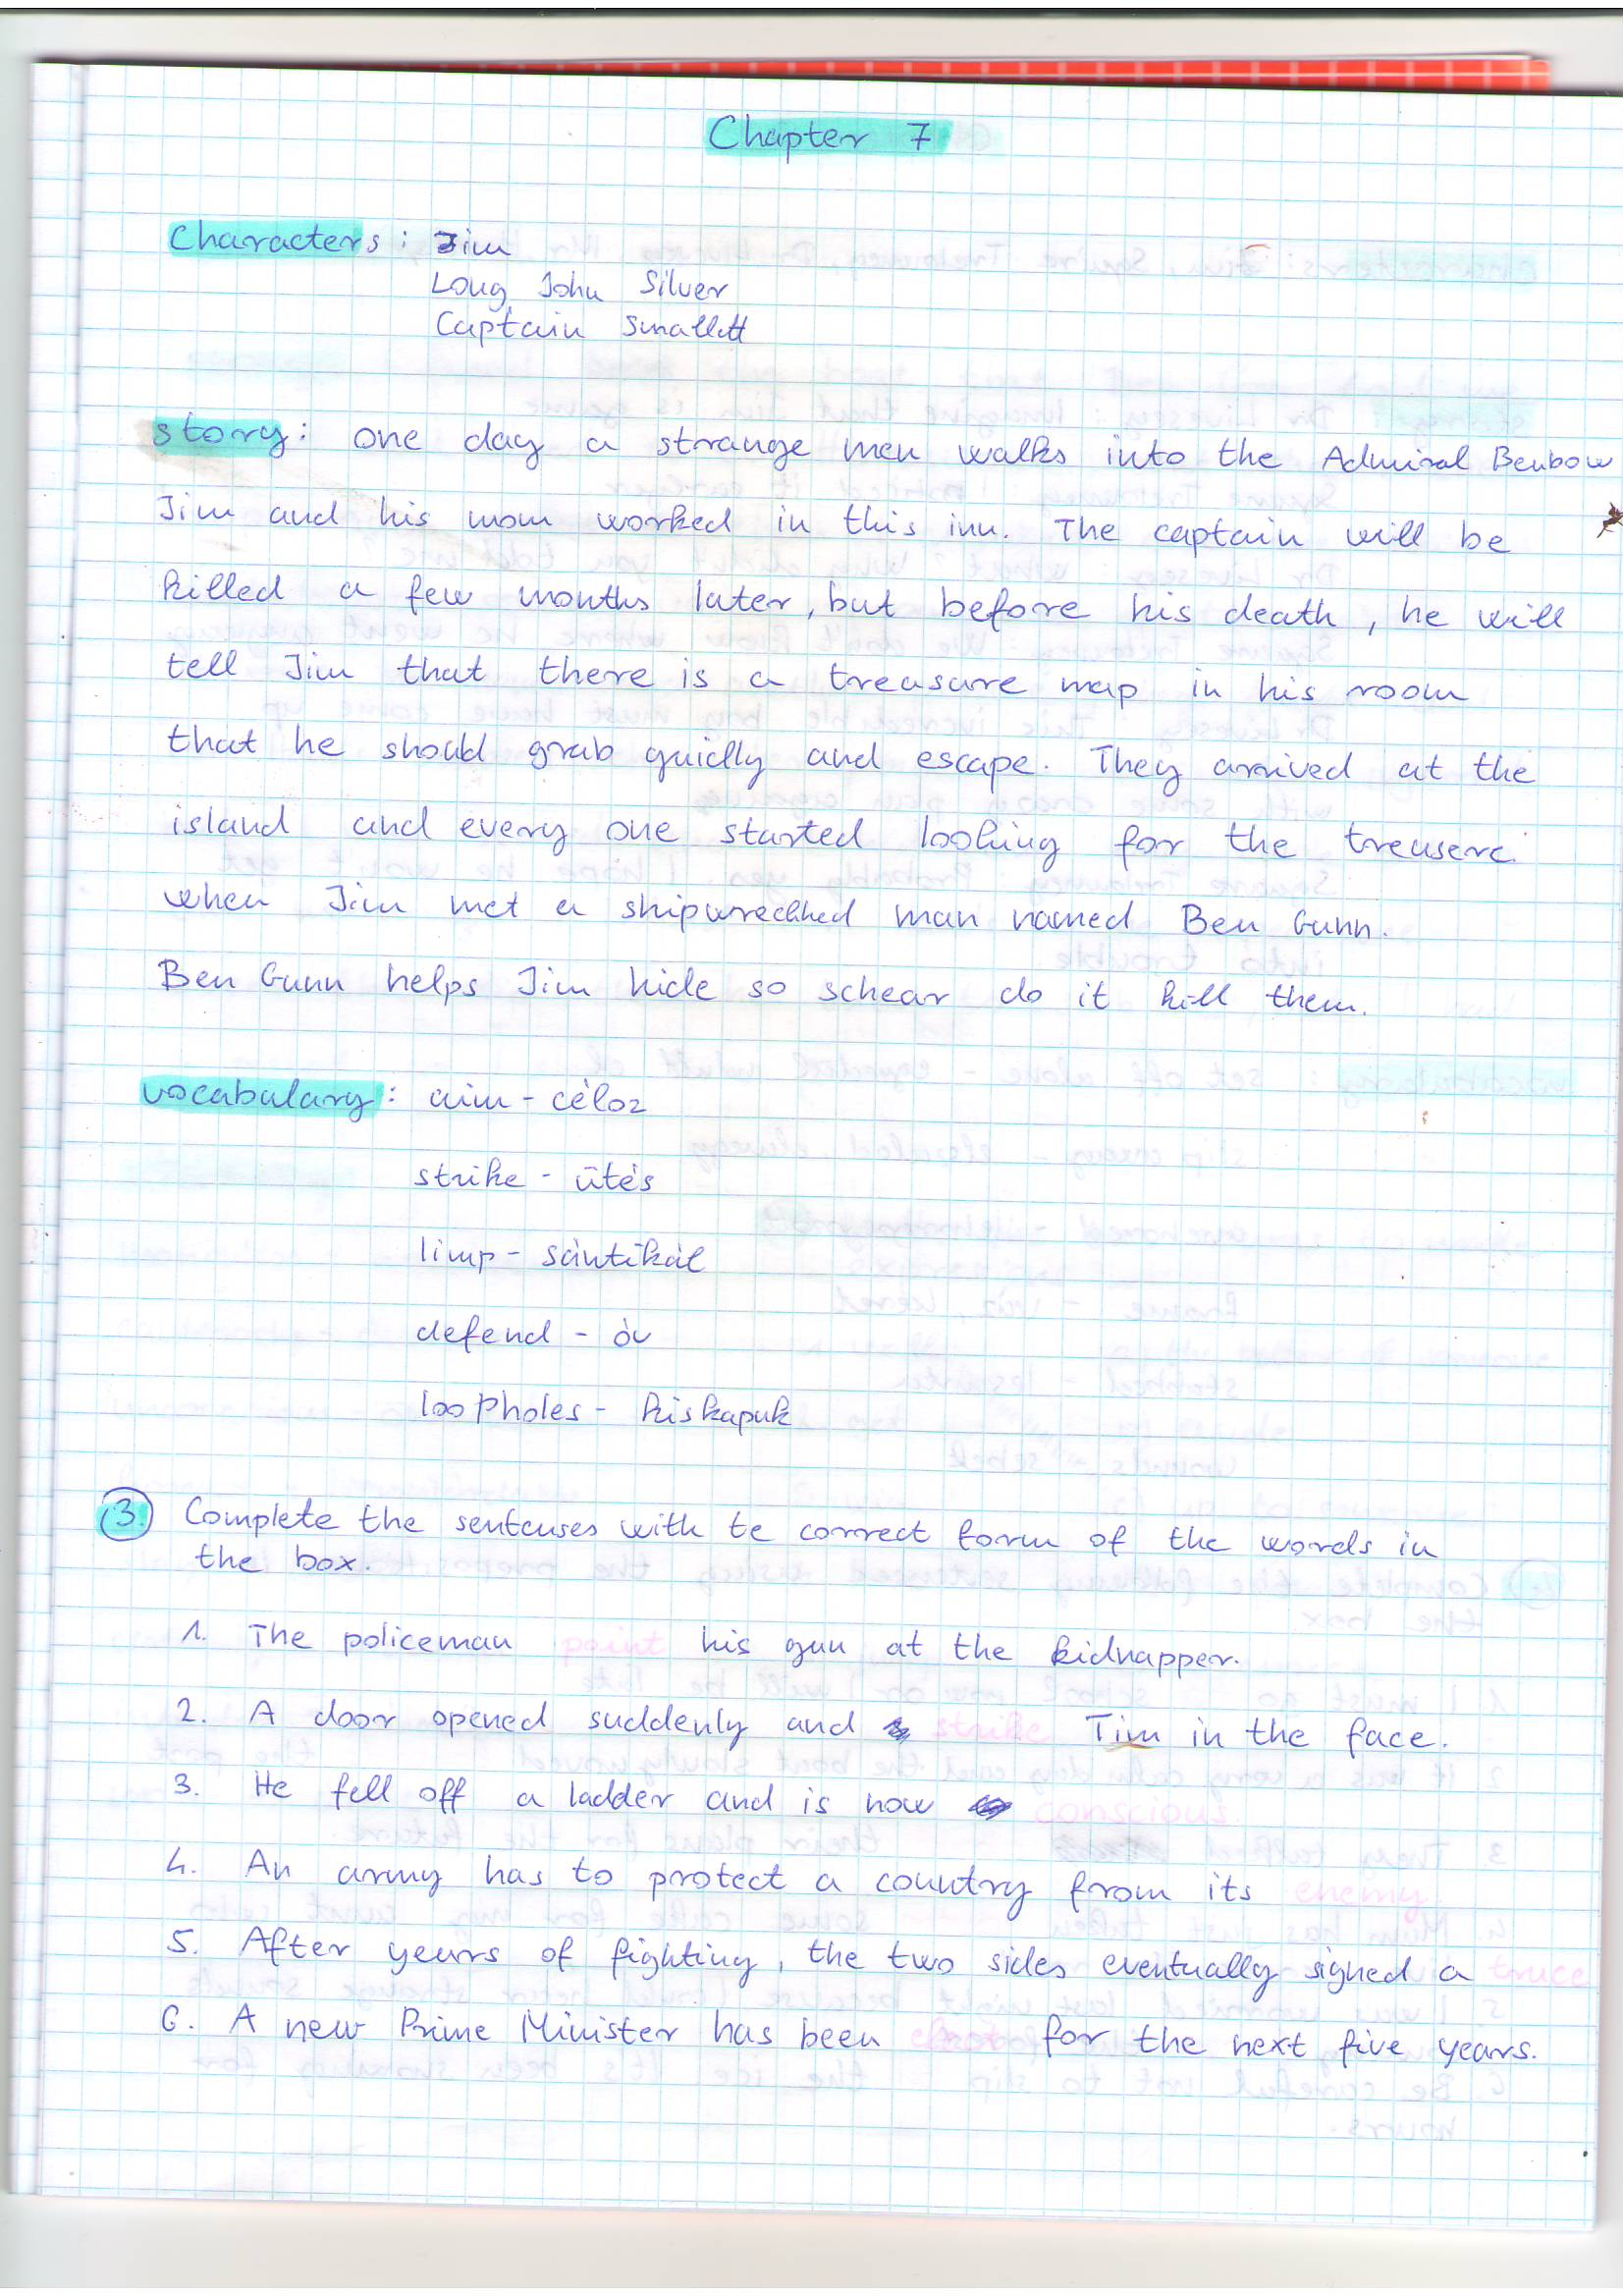 Chapter 7
Characters: Jim
Long John Silver
Captain Smallett
story: one day a strange men walks into the Admiral Benbow
Jim and his mom worked in this inn. The captain will be
killed a few months later, but before his death, he will
tell Jim that there is a treasure map in his room
that he should grab quickly and escape. They arrived at the
island and every one started looking for the treasere.
when Jim met a shipwreckked man named Ben Gunn.
Ben Gunn helps Jim hide so schear do it kill them.
vocabulary: aim - céloz
strike - ütés
limp - sántikál
defend - óv
loopholes - kiskapuk
3. Complete the sentenses with te correct form of the words in
the box.
1. The policeman point his gun at the kidnapper.
2. A door opened suddenly and strike Tim in the face.
3. He fell off a ladder and is now conscious.
4. An army has to protect a country from its enemy
5. After years of fighting, the two sides eventually signed a truce
6. A new Prime Minister has been for the next five years.